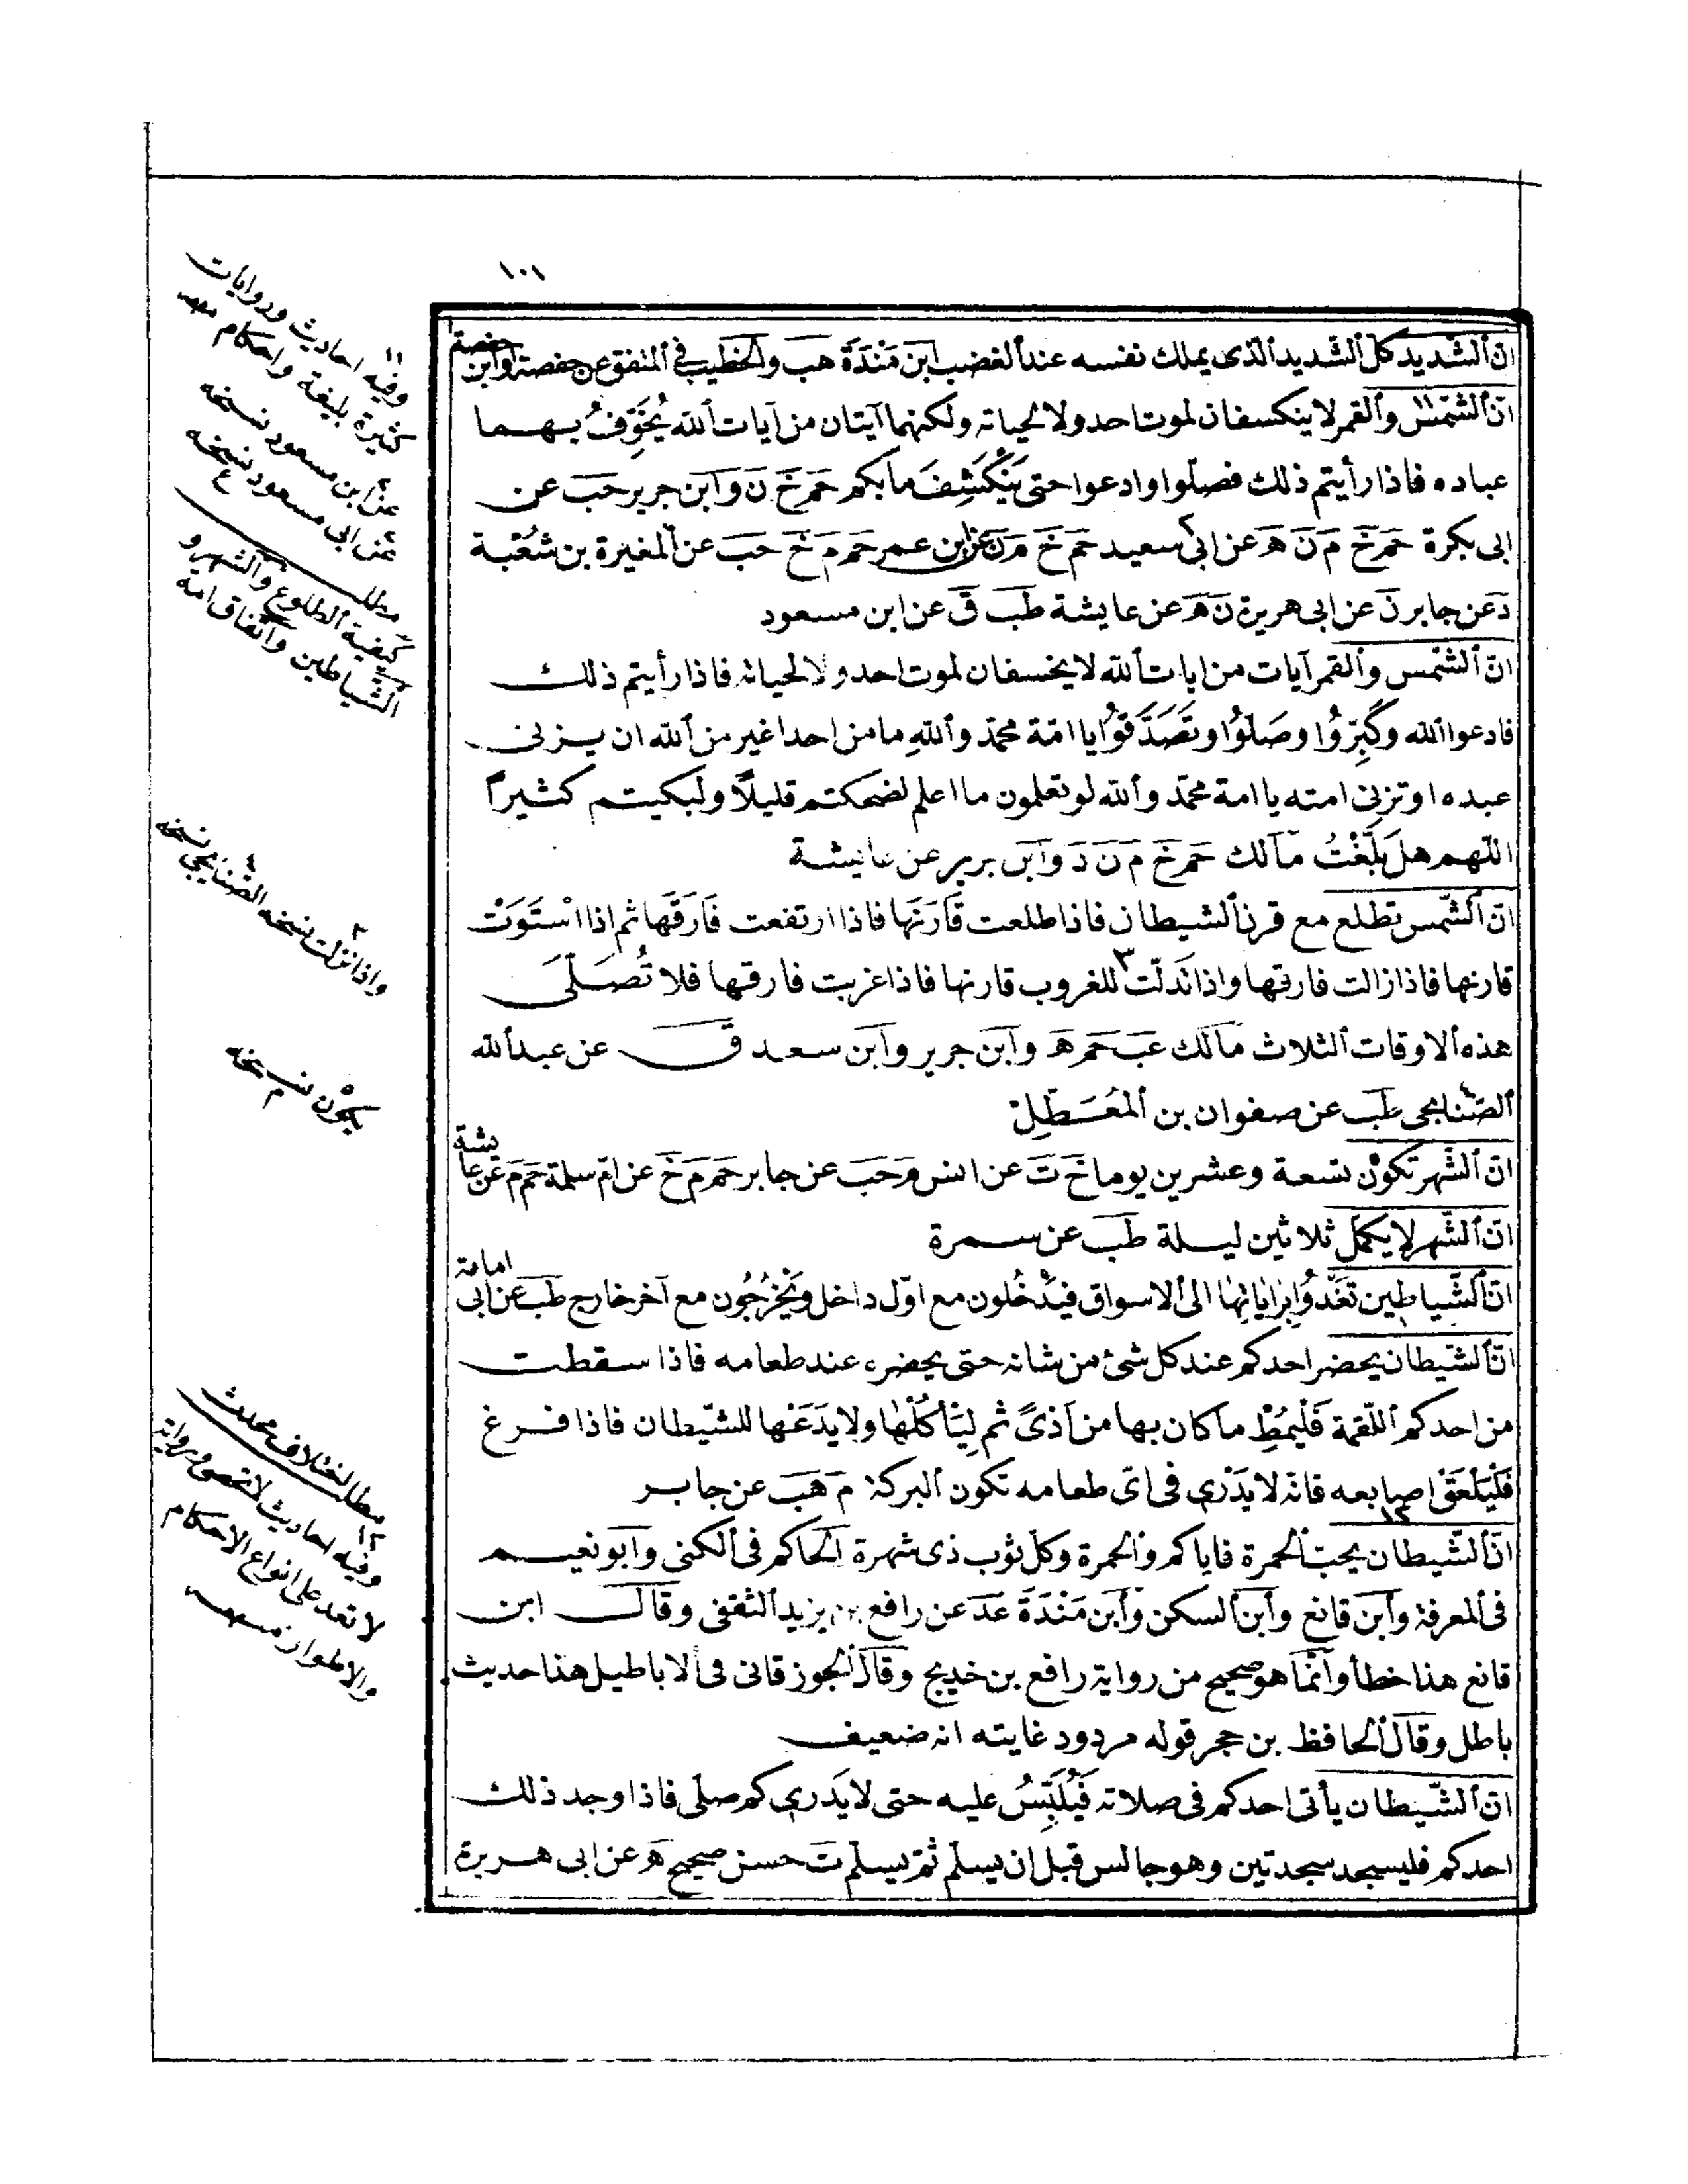 ١٠١
انّ الشّديد كل الشّديد الّذى يملك نفسه عند الغضب ابن مَنْدَةَ هب والخطيب فى المتفق عن حفصة وابن حفصة
انّ الشّمس والقمر لا ينكسفان لموت احد ولا لحياته ولكنهما آيتان من آيات الله يُخَوِّفُ بهما
عباده فاذا رأيتم ذلك فصلّوا وادعوا حتى يَنْكَشِفَ ما بكم حَم خَ نَ وابن جرير حَب عن
ابى بكرة حَم خَ مَ نَ هَ عن ابى سعيد حَم خَ مَ نَ عن ابن عمر حَم مَ خَ حَب عن المغيرة بن شُعْبة
دَ عن جابر نَ عن ابى هريرة نَ هَ عن عايشة طَب قَ عن ابن مسعود
انّ الشّمس والقمر آيات من ايات الله لا يخسفان لموت احد ولا لحياته فاذا رأيتم ذلك
فادعوا الله وكَبِّرُوا وصَلّوُا وتَصَدَّقوُا يا امّة محمّد والله ما من احد اغير من الله ان يزنى
عبده او تزنى امته يا امة محمّد والله لو تعلمون ما اعلم لضحكتم قليلاً ولبكيتم كثيراً
اللّهم هل بَلَّغْتُ مَالك حَم خَ مَ نَ دَ وابن جرير عن عايشة
انّ الشّمس تطلع مع قرن الشيطان فاذا طلعت قَارَنَها فاذا ارتفعت فَارَقَها ثم اذا اسْتَوَتْ
قارنها فاذا زالت فارقها واذا تَدلّت٣ للغروب قارنها فاذا غربت فارقها فلا تُصَلّى
هذه الاوقات الثلاث مَالك عَب حَم هَ وابن جرير وابن سعد قَ عن عبد الله
الصّنابجى٤ طَب عن صفوان بن المُعَطّل
انّ الشّهر تكون٥ تسعة وعشرين يوما خَ تَ عن انس مَ حَب عن جابر حَم مَ خَ عن امّ سلمة حَم مَ عن عايشة
انّ الشّهر لا يكمل ثلاثين ليلة طَب عن سمرة
انّ الشّياطين تَغْدُوا بِرَاياتِها الى الاسواق فيَدْخُلون مع اوّل داخل ويَخْرُجُون مع آخر خارج طَب عن ابى امامة
انّ الشّيطان يحضر احدكم عند كل شئ من شانه حتى يحضره عند طعامه فاذا سقطت
من احدكم اللّقمة فَلْيُمِطْ ما كان بها من اَذىً ثم لِيَأكُلْها ولا يَدَعْها للشّيطان فاذا فرغ
فَلْيَلْعَقْ اصابعه فانّه لا يَدْرى فى اىّ طعامه تكون البركة مَ هَب عن جابر
انّ الشّيطان١٢ يحبّ الحمرة فاياكم والحمرة وكل ثوب ذى شهرة الحاكم فى الكنى وابو نعيم
فى المعرفة وابن قانع وابن السكن وابن مَنْدَةَ عَد عن رافع بن يزيد الثقفى وقال ابن
قانع هذا خطأ وانّما هو صحيح من رواية رافع بن خديج وقال الجوزقانى فى الاباطيل هذا حديث
باطل وقال الحافظ بن حجر قوله مردود غايته انه ضعيف
انّ الشّيطان يأتى احدكم فى صلاته فَيُلَبِّسُ عليه حتى لا يَدرى كم صلّى فاذا وجد ذلك
احدكم فليسجد سجدتين وهو جالس قبل ان يسلّم ثمّ يسلّم تَ حسن صحيح هَ عن ابى هريرة
١١ وفيه احاديث وروايات
كثيرة بليغة واحكام مهمه
عن ابن مسعود نسخه
عن ابى مسعود نسخه
مطلب
كيفية الطلوع والشهر و
الشياطين واتفاق امة
٣ واذا نزلت نسخه
٤ الصّنابحى نسخه
٥ يكون نسخه م
مطلب اختلاف محدث
١٢ وفيه احاديث لا تحصى ورواية
لا تعد على انواع الاحكام
والاطوار